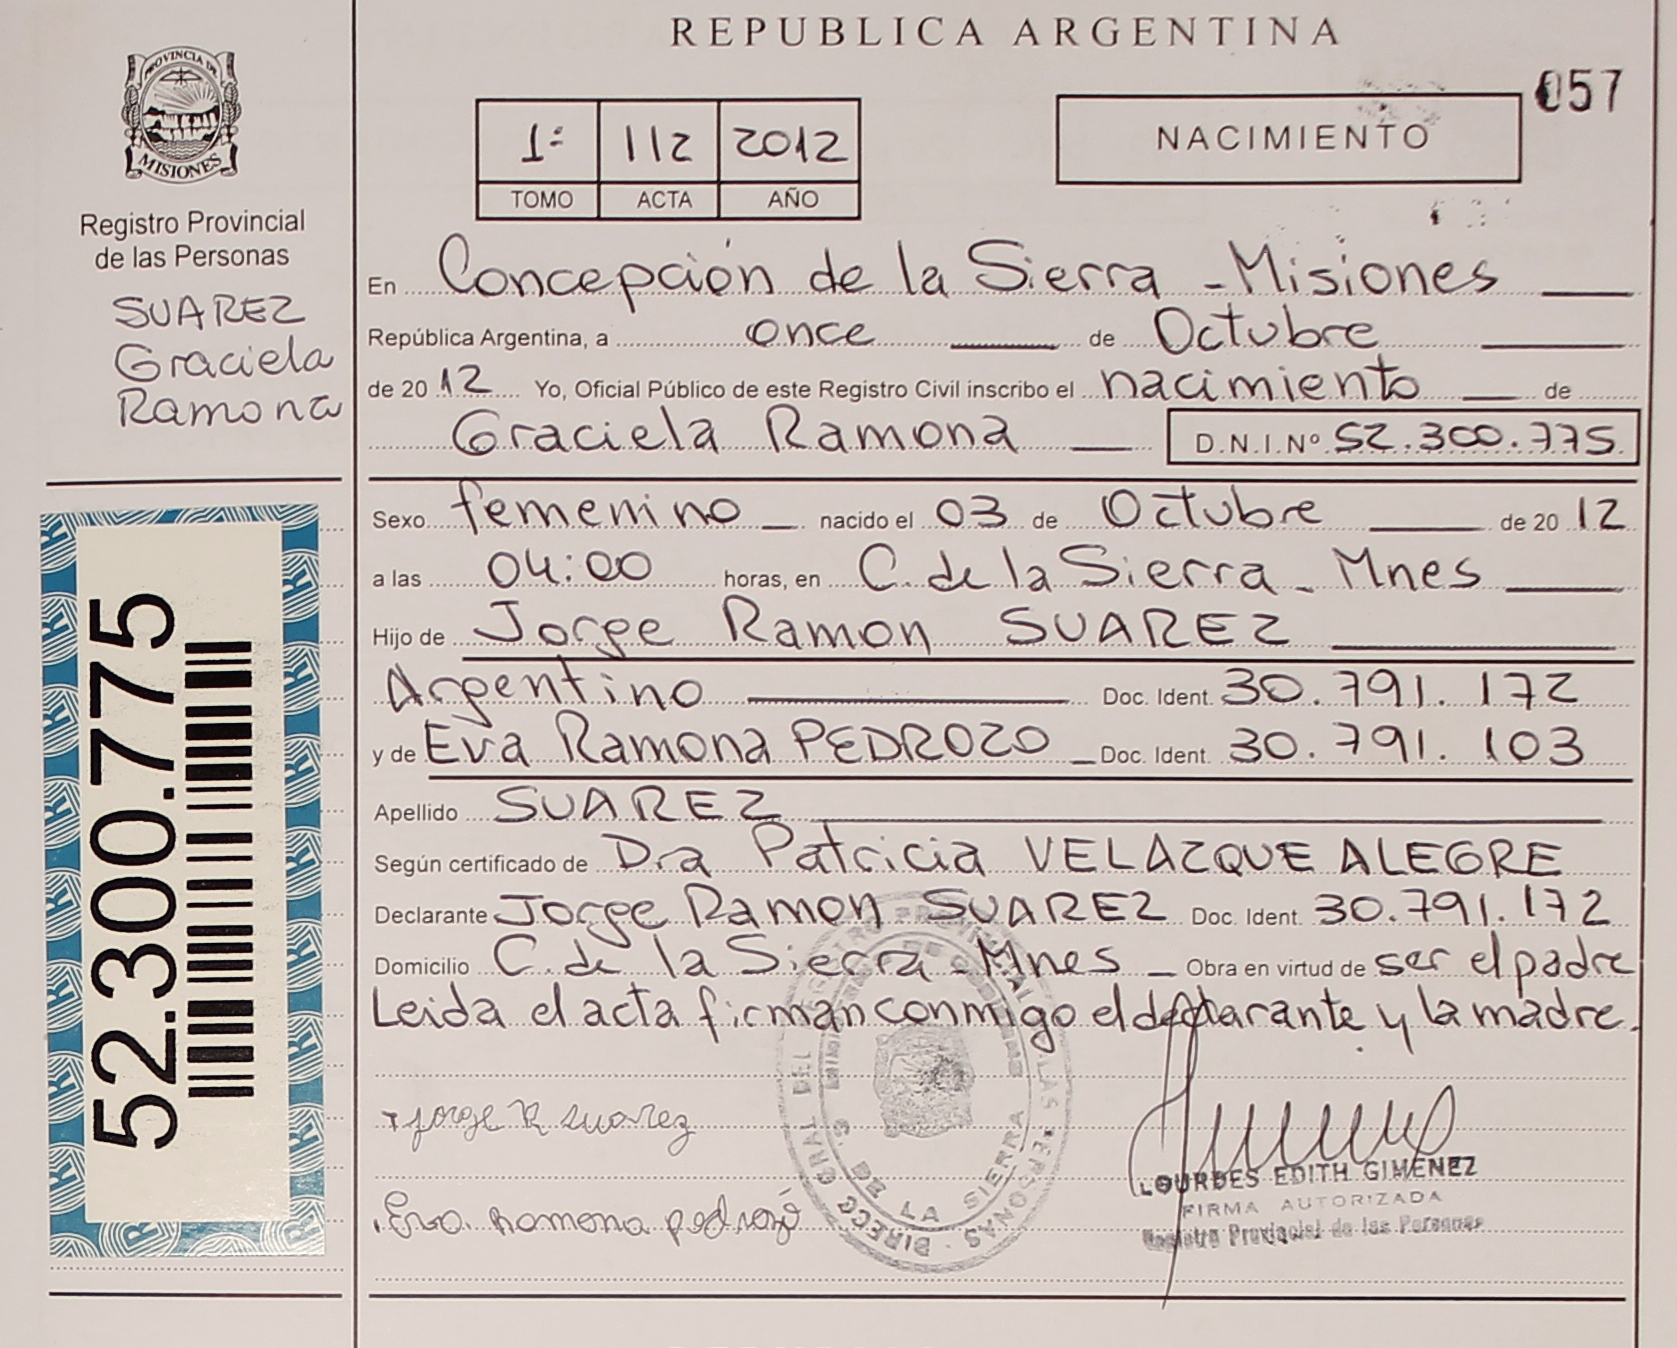 REPUBLICA ARGENTINA
057
PROVINCIA DE
MISIONES
Registro Provincial
de las Personas
SUAREZ
Graciela
Ramona
52.300.775
1ª 112 2012
TOMO ACTA AÑO
NACIMIENTO
En Concepción de la Sierra - Misiones
República Argentina, a once de Octubre
de 2012 Yo, Oficial Público de este Registro Civil inscribo el nacimiento de
Graciela Ramona D.N.I.Nº 52.300.775
Sexo femenino nacido el 03 de Octubre de 2012
a las 04:00 horas, en C. de la Sierra - Mnes
Hijo de Jorge Ramon SUAREZ
Argentino Doc. Ident. 30.791.172
y de Eva Ramona PEDROZO Doc. Ident. 30.791.103
Apellido SUAREZ
Según certificado de Dra Patricia VELAZQUE ALEGRE
Declarante Jorge Ramon SUAREZ Doc. Ident. 30.791.172
Domicilio C. de la Sierra - Mnes Obra en virtud de ser el padre
Leida el acta firman conmigo el declarante y la madre.
Jorge R Suarez
Eva Ramona pedrozo
DE LA SIERRA
LOURDES EDITH GIMENEZ
FIRMA AUTORIZADA
Registro Provincial de las Personas